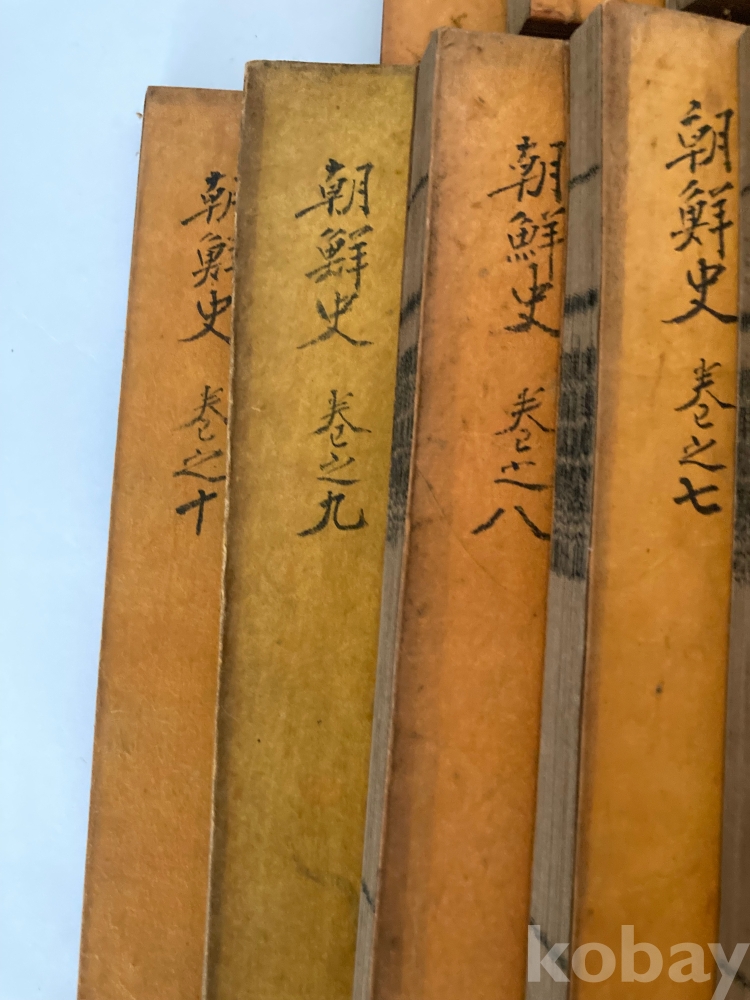 朝鮮史 卷之七
朝鮮史 卷之八
朝鮮史 卷之九
朝鮮史 卷之十
kobay